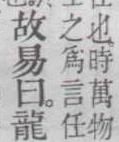 也。時萬物
之爲言任
故易曰。龍